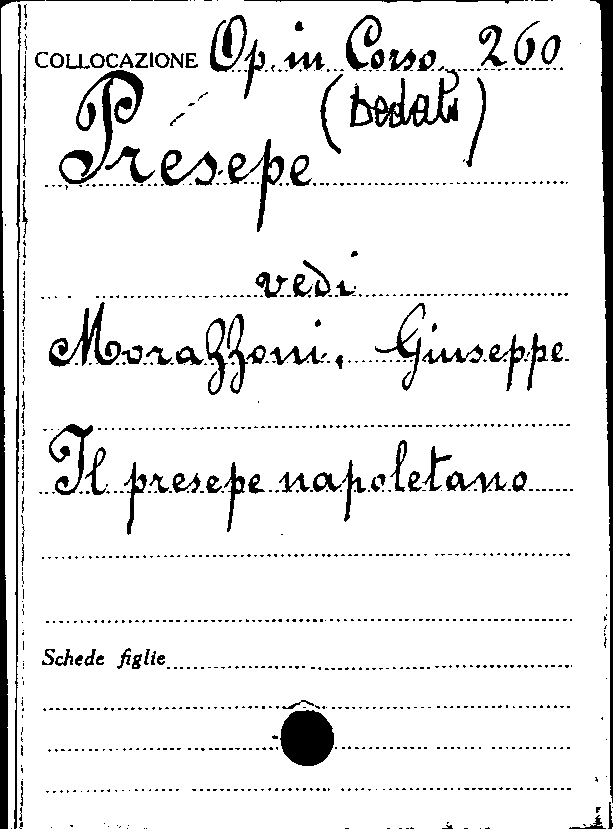 COLLOCAZIONE Op. in Corso 260
(Dedalo)
Presepe
vedi
Morazzoni, Giuseppe
Il presepe napoletano
Schede figlie